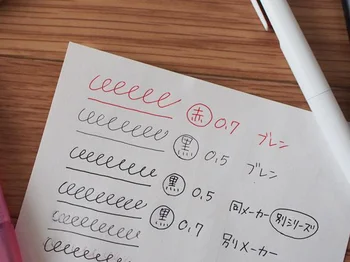 赤 0.7 ブレン
黒 0.5 ブレン
黒 0.5 同メーカー 別シリーズ
黒 0.7 別メーカー